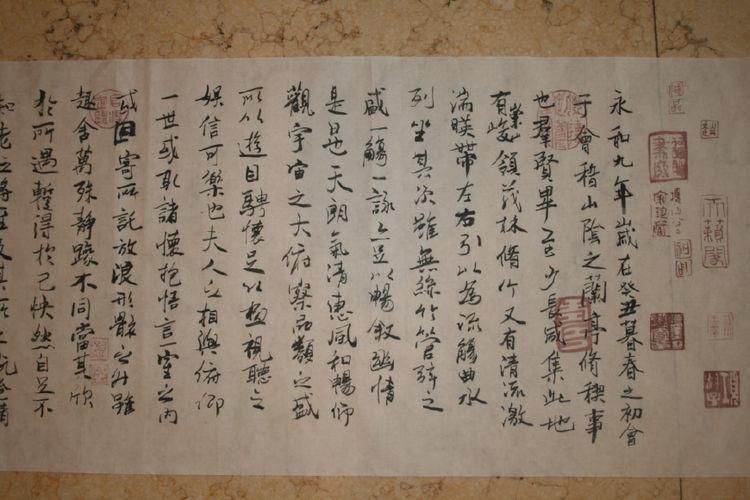 永和九年歲在癸丑暮春之初會
于會稽山陰之蘭亭脩稧事
也羣賢畢至少長咸集此地
有崇山峻領茂林脩竹又有清流激
湍暎帶左右引以為流觴曲水
列坐其次雖無絲竹管弦之
盛一觴一詠亦足以暢叙幽情
是日也天朗氣清惠風和暢仰
觀宇宙之大俯察品類之盛
所以遊目騁懷足以極視聽之
娛信可樂也夫人之相與俯仰
一世或取諸懷抱悟言一室之內
或因寄所託放浪形骸之外雖
趣舍萬殊靜躁不同當其欣
於所遇暫得於己快然自足不
知老之將至及其所之既倦情
天籟閣